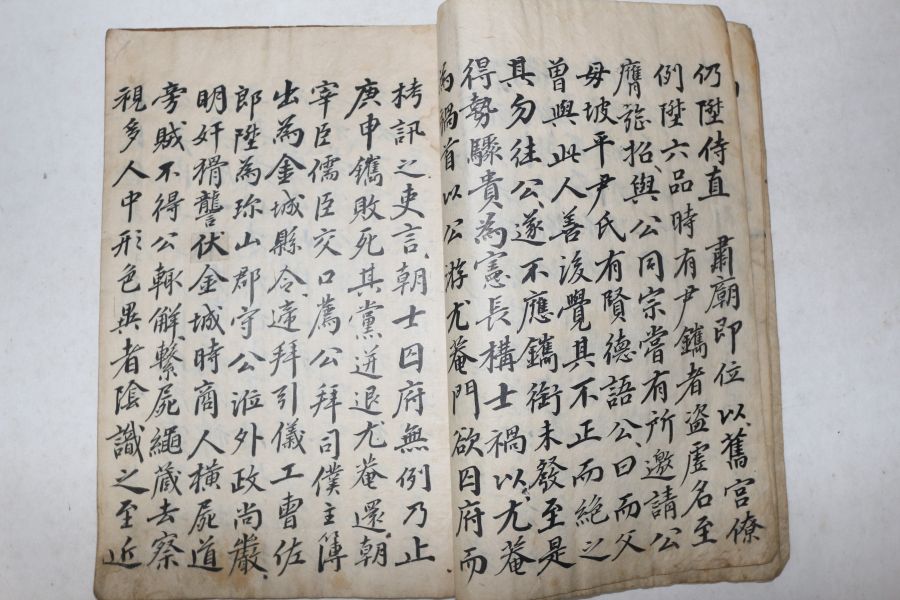 仍陞侍直 肅廟即位以舊宮僚
例陞六品時有尹鑴者盜虛名至
膺旌招與公同宗嘗有所邀請公
母坡平尹氏有賢德語公曰而父
曾與此人善後覺其不正而絶之
其勿往公遂不應鑴銜未發至是
得勢驟貴為憲長構士禍以尤菴
為禍首以公游尤菴門欲囚府而
栲訊之吏言朝士囚府無例乃止
庚申鑴敗死其黨迸退尤菴還朝
宰臣儒臣交口薦公拜司僕主簿
出為金城縣令遞拜引儀工曹佐
郎陞為珎山郡守公涖外政尚嚴
明奸猾讋伏金城時商人橫屍道
旁賊不得公輒解繫屍繩蔵去察
視多人中形色異者陰識之至近